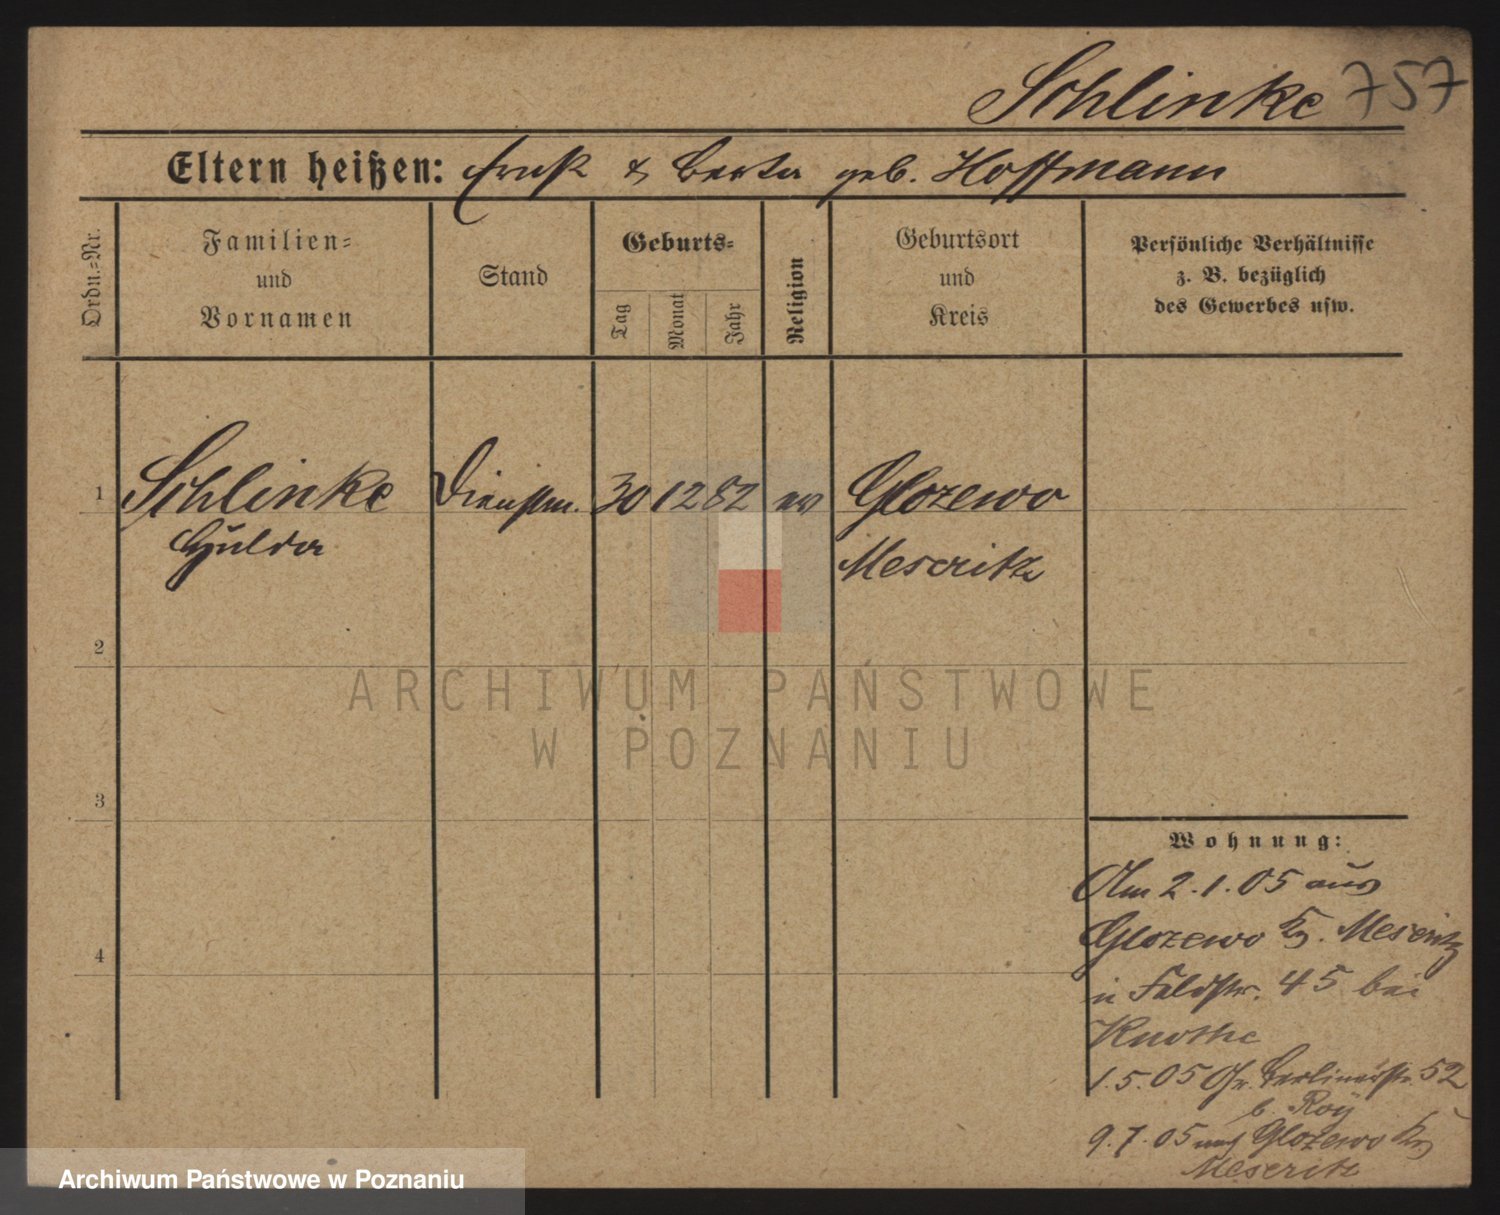 Schlinke 757
Eltern heißen: Ernst & Berta geb. Hoffmann
Ordn.=Nr.
Familien=
und
Vornamen
Stand
Geburts=
Tag
Monat
Jahr
Religion
Geburtsort
und
Kreis
Persönliche Verhältnisse
z. B. bezüglich
des Gewerbes usw.
1 Schlinke Dienstm. 30 12 82 ev Glozewo
Hulda Meseritz
2
ARCHIWUM PAŃSTWOWE
W POZNANIU
3
Wohnung:
Am 2.1.05 aus
Glozewo Kr. Meseritz
4
in Feldstr. 45 bei
Knothe
1.5.05 Gr. Berlinerstr. 52
b. Roy
9.7.05 nach Glozewo Kr
Meseritz
Archiwum Państwowe w Poznaniu